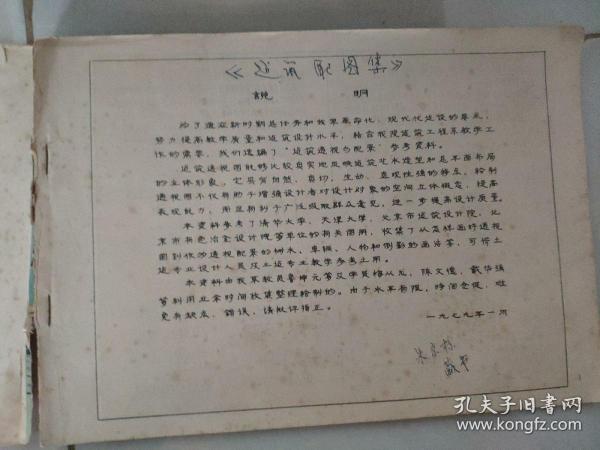 《建筑配图集》
説 明
为了适应新时期总任务和我军革命化、现代化建设的要求，
努力提高教学质量和建筑设计水平，结合我院建筑工程系教学工
作的需要，我们选编了"建筑透视与配景"参考资料。
建筑透视图能够比较真实地反映建筑艺术造型和总平面布局
的立体形象，它具有自然、真切、生动、直观性强的特点，绘制
透视图不仅有助于增强设计者对设计对象的空间立体概念，提高
表现能力，而且有利于广泛吸取群众意见，进一步提高设计质量。
本资料参考了清华大学、天津大学、北京市建筑设计院、北
京有色冶金设计院等单位的有关图册，收集了从怎样画好透视
图到作为透视配景的树木、车辆、人物和倒影的画法等，可供土
建专业设计人员及土建专业教学参考之用。
本资料由我系教员鲁坤元等及学员 陈文德、戴华强
等利用业余时间收集整理绘制的。由于水平有限，时间仓促，难
免有缺点、错误，请批评指正。
一九七九年一月
孔夫子旧书网
www.kongfz.com